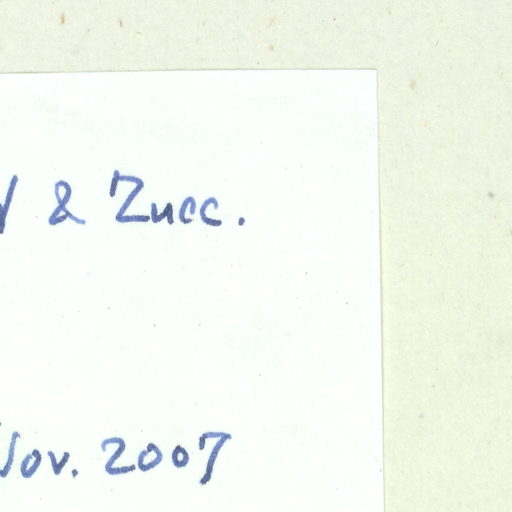 & Zucc.
Nov. 2007